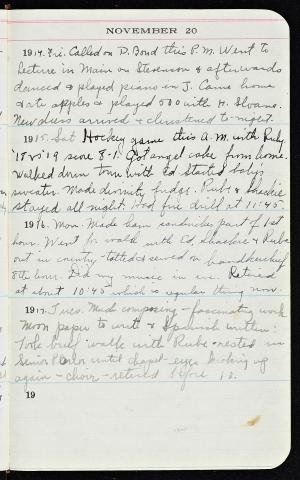 NOVEMBER 20
1914. Fri. Called on D. Bond this P.M. Went to
lecture in Main on Stevenson & afterwards
danced & played piano in J. Came home
& ate apples & played 500 with H. Sloane.
New dress arrived & christened to-night.
1915. Sat. Hockey game this A.M. with Ruby.
'18 vs '19 score 8-1. Got angel cake from home.
Walked down town with Ed. Started baby's
sweater. Made divinity fudge. Rube &
stayed all night. Had fire drill at 11:45.
1916. Mon. Made ham sandwiches part of 1st
hour. Went for walk with Ed, & Rube
out in country - tatted & sewed on handkerchief
8th hour. Did my music in eve. Retired
at about 10:45 which is regular thing now.
1917. Tues. Much composing - fascinating work
Moon paper to write & Spanish written.
Took brief walk with Rube - rested in
Senior Parlor until chapel - eyes kicking up
again - choir - retired before 10.
19